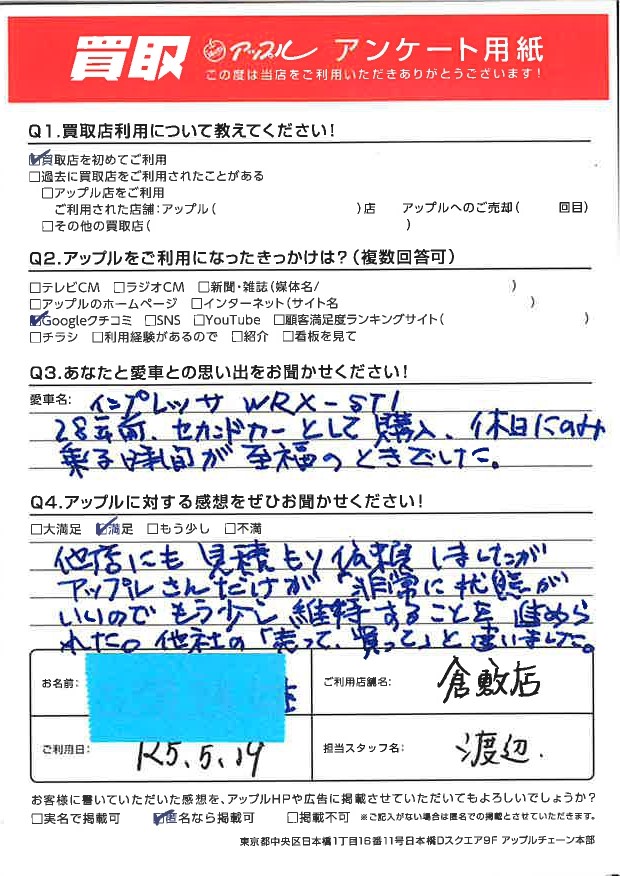 買取 アップル アンケート用紙
この度は当店をご利用いただきありがとうございます！
Q1.買取店利用について教えてください！
☑買取店を初めてご利用
□過去に買取店をご利用されたことがある
□アップル店をご利用
ご利用された店舗：アップル（　　　）店　アップルへのご売却（　　回目）
□その他の買取店（　　　）
Q2.アップルをご利用になったきっかけは？（複数回答可）
□テレビCM □ラジオCM □新聞・雑誌（媒体名/　　　）
□アップルのホームページ □インターネット（サイト名　　　）
☑Googleクチコミ □SNS □YouTube □顧客満足度ランキングサイト（　　　）
□チラシ □利用経験があるので □紹介 □看板を見て
Q3.あなたと愛車との思い出をお聞かせください！
愛車名： インプレッサ WRX-STI
28年前、セカンドカーとして購入、休日にのみ
乗る時間が至福のときでした。
Q4.アップルに対する感想をぜひお聞かせください！
□大満足 ☑満足 □もう少し □不満
他店にも見積もり依頼しましたが
アップルさんだけが「非常に状態が
いいのでもう少し維持することを進めら
れた。他社の「売って、買って」と違いました。
お名前：
ご利用店舗名： 倉敷店
ご利用日： R5.5.19
担当スタッフ名： 渡辺.
お客様に書いていただいた感想を、アップルHPや広告に掲載させていただいてもよろしいでしょうか？
□実名で掲載可 ☑匿名なら掲載可 □掲載不可 ※ご記入がない場合は匿名での掲載とさせていただきます。
東京都中央区日本橋1丁目16番11号日本橋Dスクエア9F アップルチェーン本部